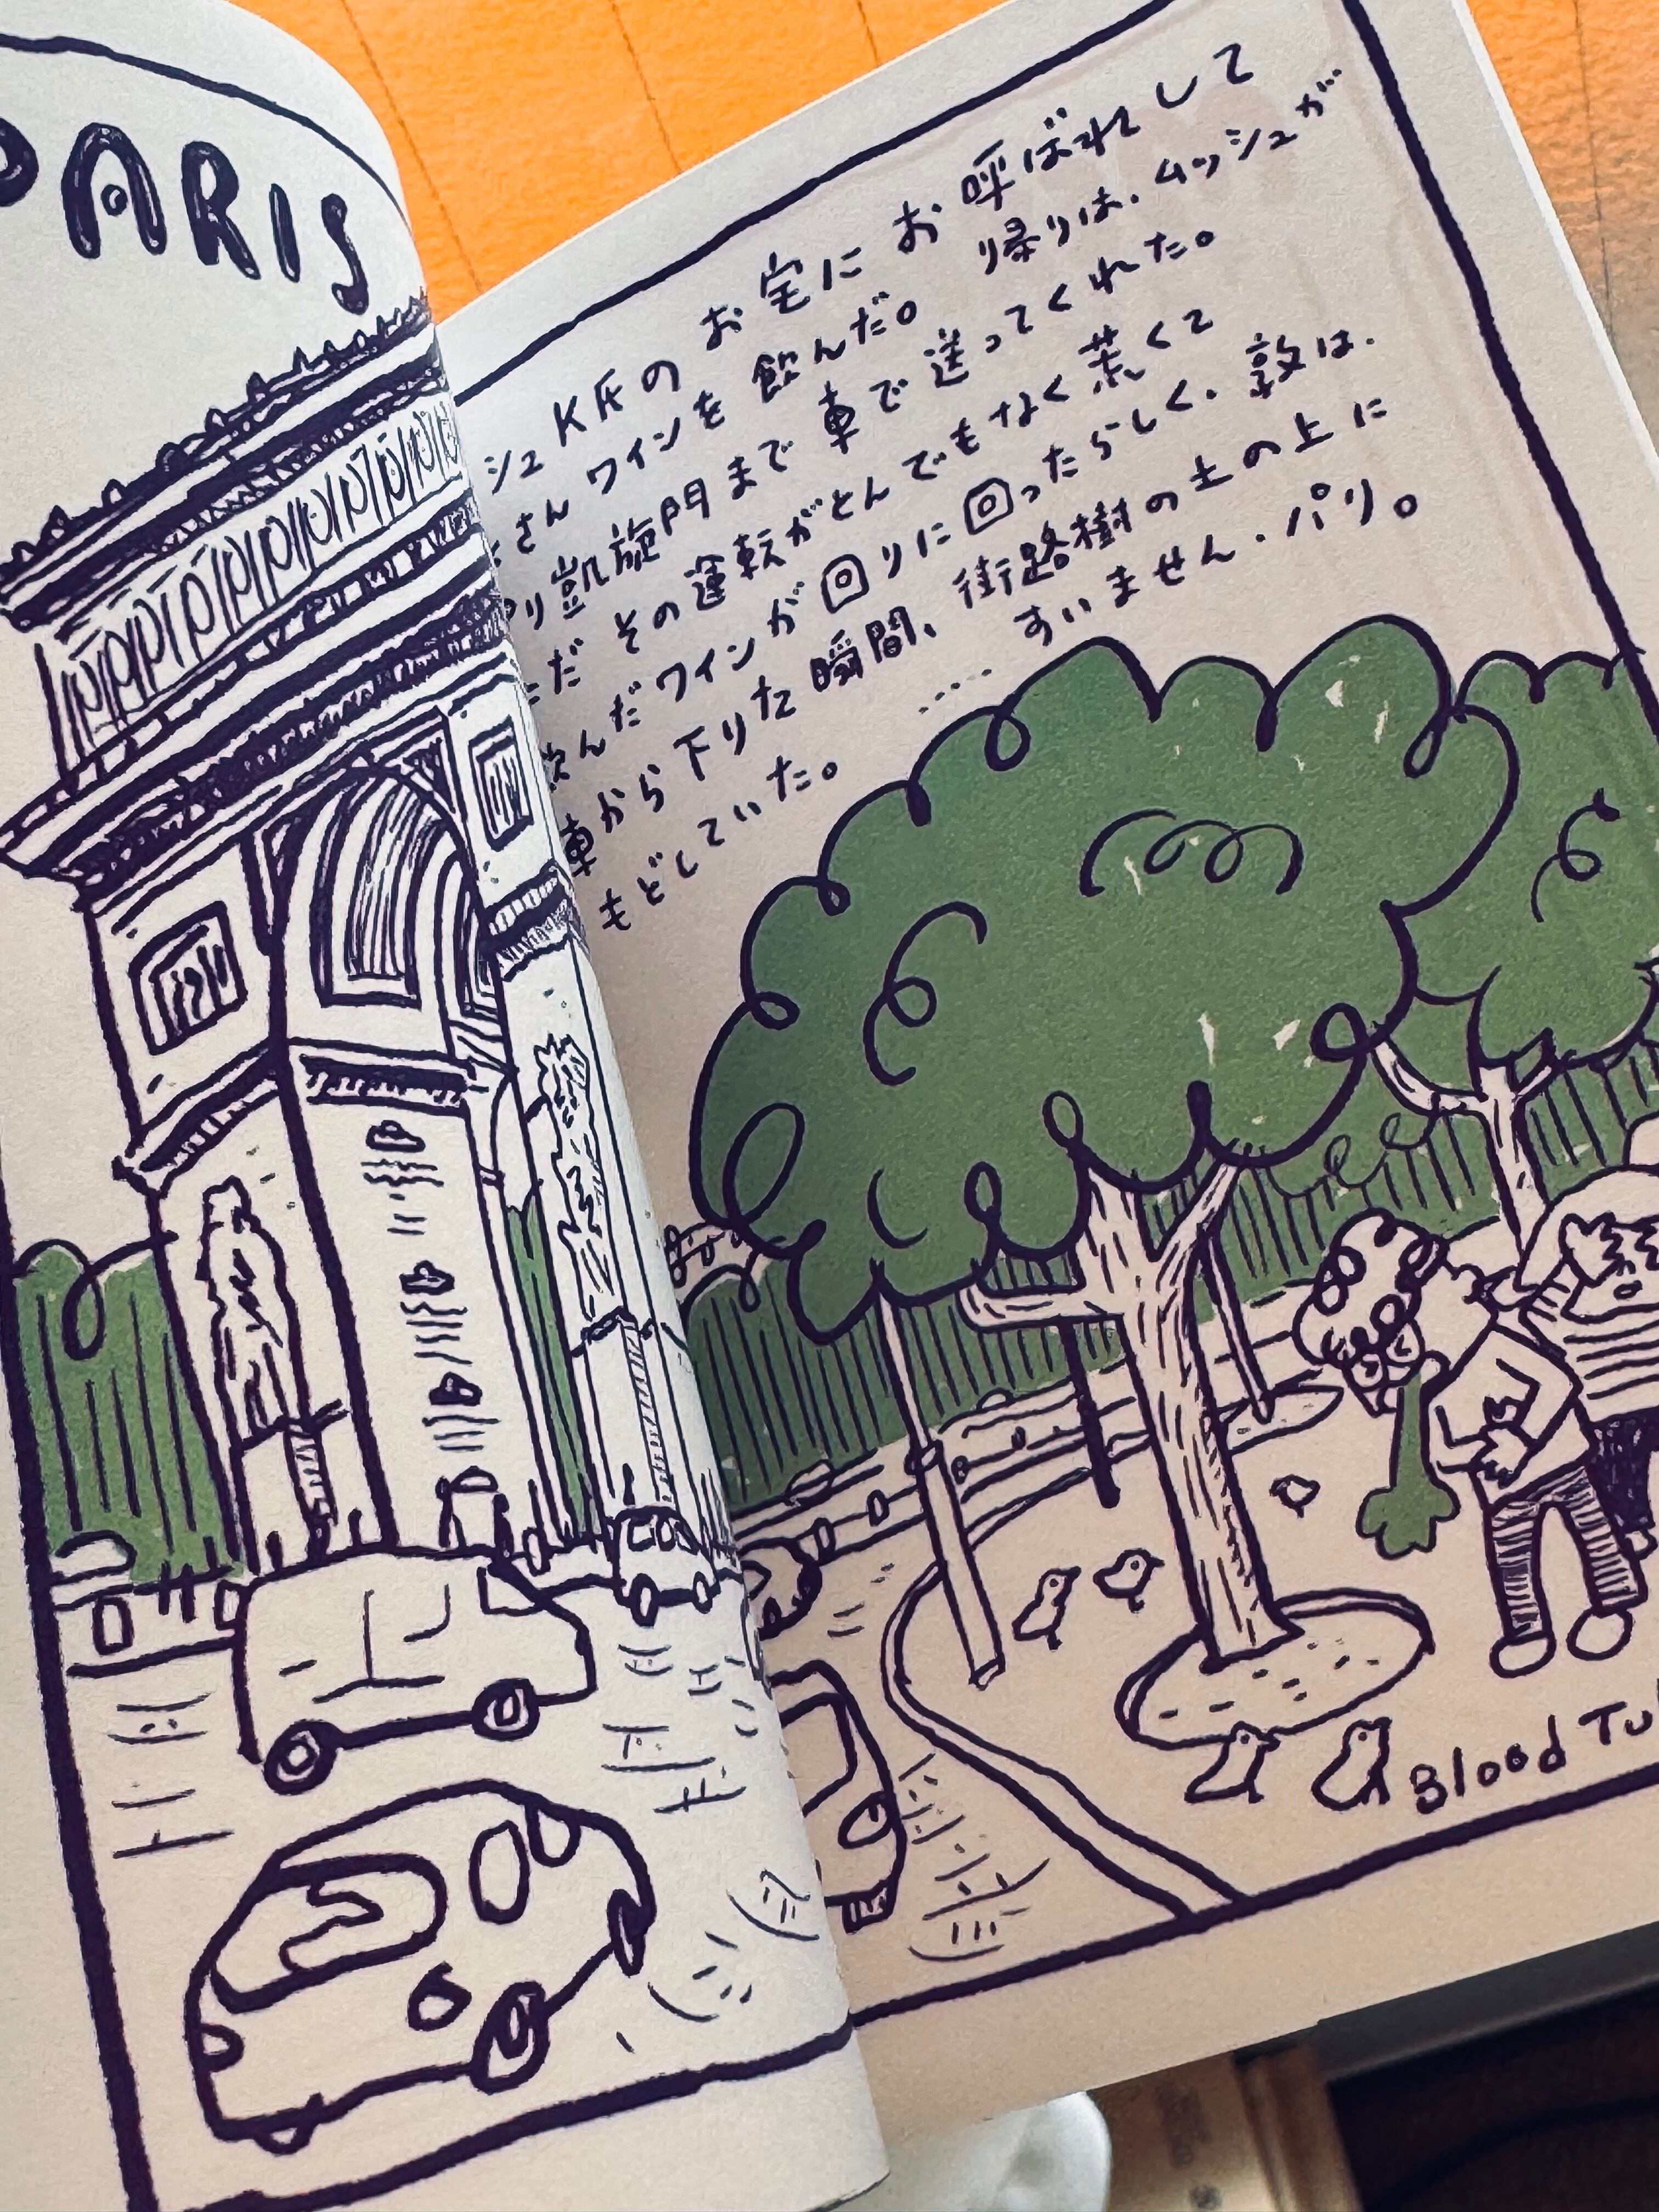 PARIS
シュK氏のお宅にお呼ばれして
さんワインを飲んだ。帰りは、ムッシュが
り凱旋門まで車で送ってくれた。
ただその運転がとんでもなく荒くて
飲んだワインが回りに回ったらしく、敦は、
車から下りた瞬間、街路樹の土の上に
もどしていた。
……すいません、パリ。
Blood Tu